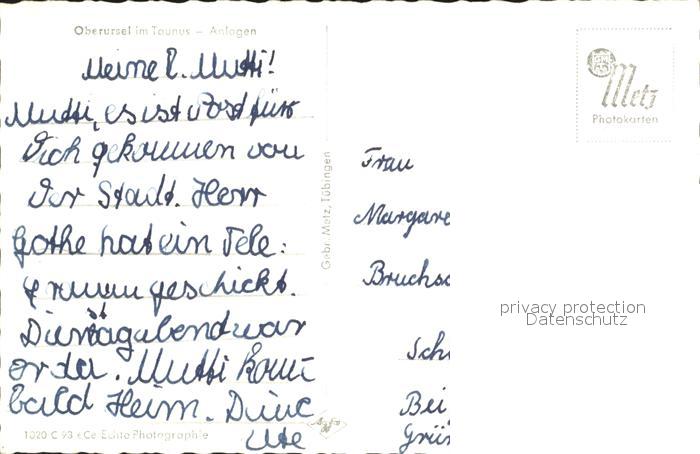 Oberursel im Taunus – Anlagen
Meine l. Mutti!
Mutti, es ist Post für
Dich gekommen von
der Stadt. Herr
Gothe hat ein Tele:
gramm geschickt.
Dienstagabend war
er da. Mutti komm
bald Heim. Deine
Ute
1020 C 93 Echte Photographie
Gebr. Metz, Tübingen
Metz
Photokarten
Frau
Margare
Bruchso
Sch
Bei
Grün
privacy protection
Datenschutz